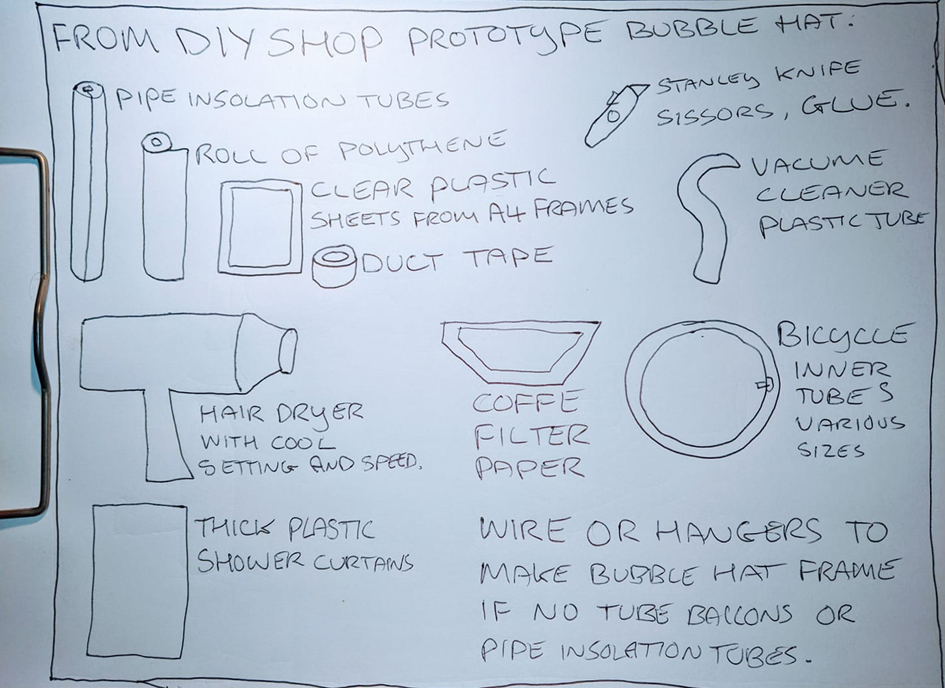 FROM DIY SHOP PROTOTYPE BUBBLE HAT.
PIPE INSOLATION TUBES
STANLEY KNIFE
SISSORS, GLUE.
ROLL OF POLYTHENE
CLEAR PLASTIC
SHEETS FROM A4 FRAMES
VACUME
CLEANER
PLASTIC TUBE
DUCT TAPE
HAIR DRYER
WITH COOL
SETTING AND SPEED.
COFFE
FILTER
PAPER
BICYCLE
INNER
TUBES
VARIOUS
SIZES
THICK PLASTIC
SHOWER CURTAINS
WIRE OR HANGERS TO
MAKE BUBBLE HAT FRAME
IF NO TUBE BALLONS OR
PIPE INSOLATION TUBES.